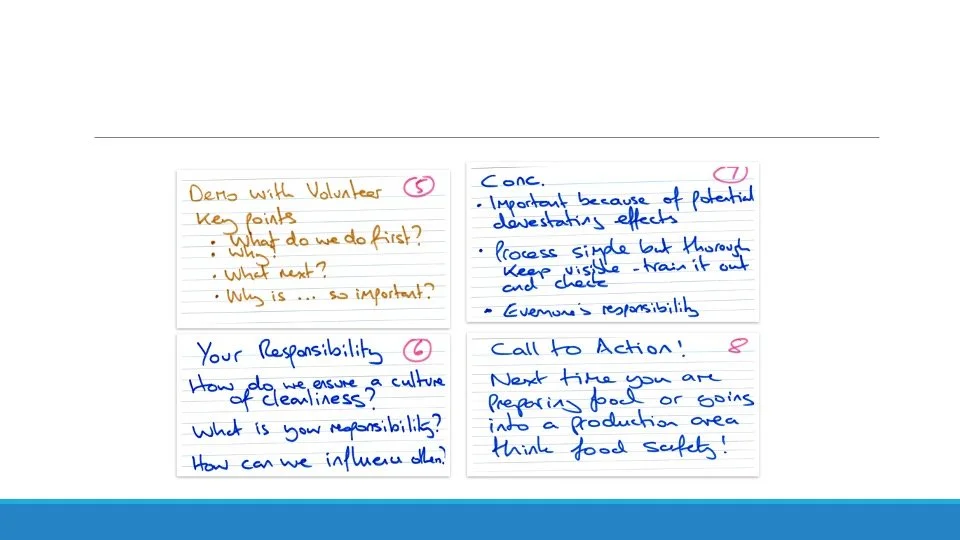 Demo with Volunteer 5
Key points
• What do we do first?
• Why?
• What next?
• Why is ... so important?
Your Responsibility 6
How do we ensure a culture
of cleanliness?
What is your responsibility?
How can we influence other?
Conc. 7
• Important because of potential
devestating effects
• Process simple but thorough
Keep visible - train it out
and check
• Everyone's responsibility
Call to Action! 8
Next time you are
preparing food or going
into a production area
think food safety!